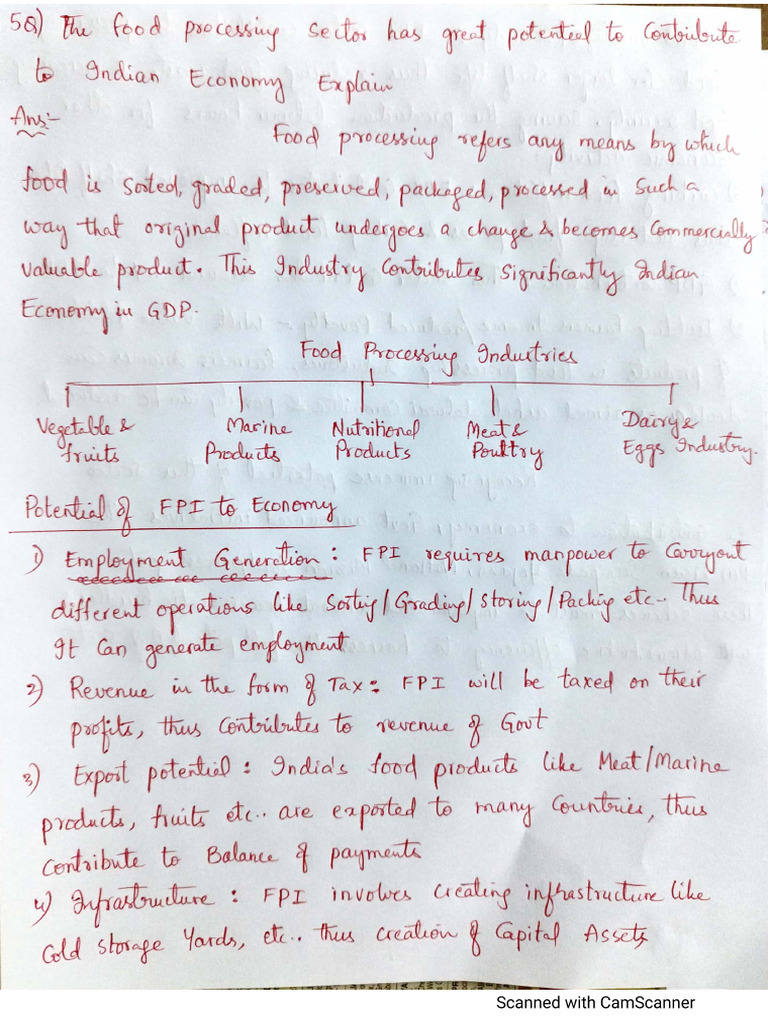 5Q) The food processing sector has great potential to Contribute
to Indian Economy Explain
Ans:-
Food processing refers any means by which
food is Sorted, graded, preserved, packaged, processed in Such a
way that original product undergoes a change & becomes Commercially
valuable product. This Industry Contributes Significantly Indian
Economy in GDP.
Food Processing Industries
Vegetable & fruits
Marine Products
Nutritional Products
Meat & Poultry
Dairy & Eggs Industry.
Potential of FPI to Economy
1) Employment Generation : FPI requires manpower to Carryout
different operations like Sorting/Grading/Storing/Packing etc.. Thus
It Can generate employment
2) Revenue in the form of Tax : FPI will be taxed on their
profits, thus Contributes to revenue of Govt
3) Export potential : India's food products like Meat/Marine
products, fruits etc.. are exported to many Countries, thus
Contribute to Balance of payments
4) Infrastructure : FPI involves Creating infrastructure like
Cold storage Yards, etc.. thus creation of Capital Assets
Scanned with CamScanner